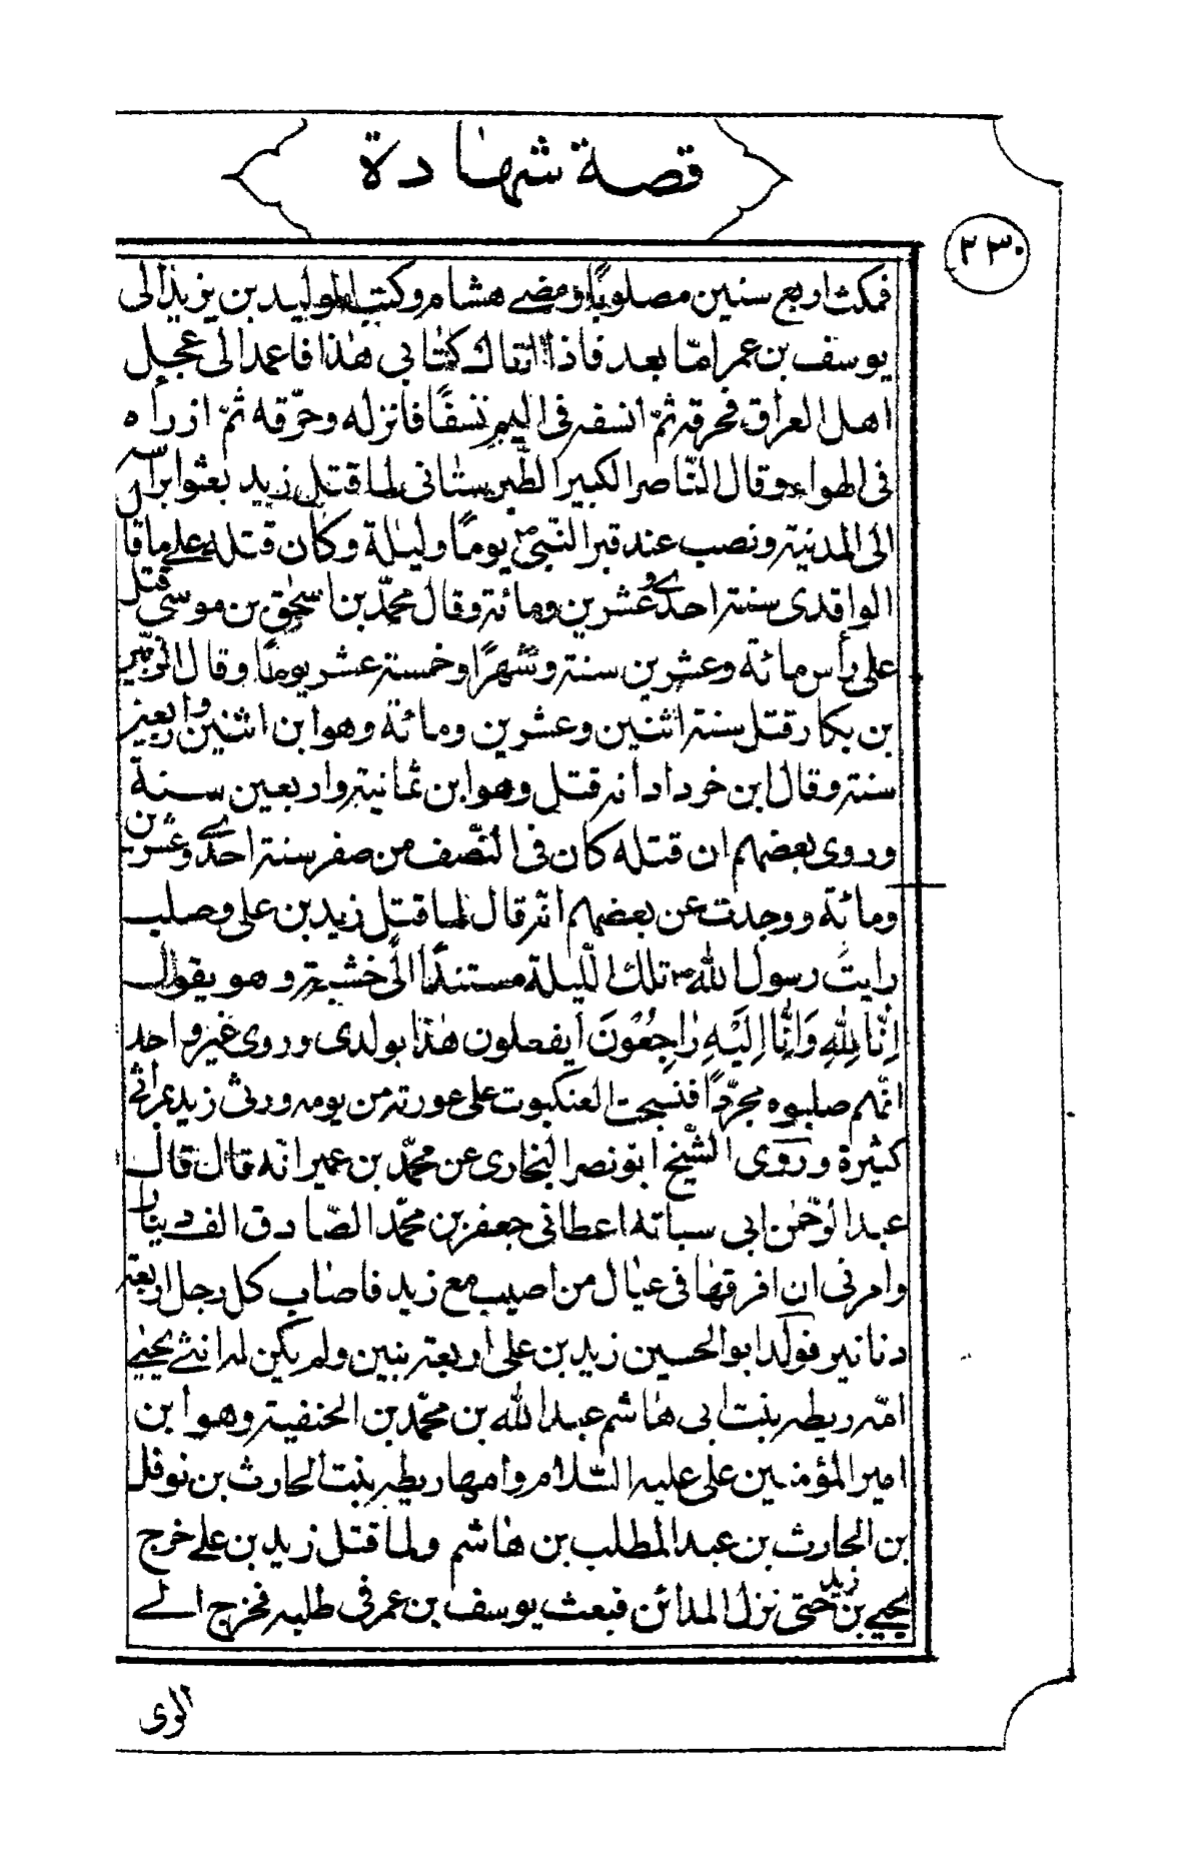 قصة شهادة
٢٣٠
فمكث اربع سنين مصلوبًا ومضى هشام وكتب الوليد بن يزيد الى
يوسف بن عمر امّا بعد فاذا اتاك كتابى هٰذا فاعمد الى عجل
اهل العراق فحرقه ثمّ انسفه فى اليم نسفًا فانزله وحرّقه ثمّ اذراه
فى الهواء وقال النّاصر الكبير الطّبرستانى لما قتل زيد بعثوا براسه
الى المدنية ونصب عند قبر النّبى ص يومًا وليلة وكان قتله على ما قال
الواقدى سنة احدى وعشرين ومائة وقال محمّد بن اسحٰق بن موسى قتل
على رأس مائة وعشرين سنة وشهرًا وخمسة عشر يومًا وقال الزّبير
بن بكار قتل سنة اثنين وعشرين ومائة وهو ابن اثنين واربعين
سنة وقال ابن خرداد انه قتل وهو ابن ثمانية واربعين سنة
وروى بعضهم ان قتله كان فى النّصف من صفر سنة احدى وعشرين
ومائة ووجدت عن بعضهم انّه قال لما قتل زيد بن على وصلب
رايت رسول الله ص تلك اللّيلة مستندًا الى خشبة وهو يقول
اِنَّا لِلّٰهِ وَاِنَّا اِلَيْهِ رٰاجِعُونَ أيفعلون هٰذا بولدى وروى غير واحد
انّهم صلبوه مجرّدًا فنسجت العنكبوت على عورته من يومه ورثى زيد بمراثى
كثيرة وروى الشّيخ ابو نصر البخارى عن محمّد بن عمير انّه قال قال
عبد الرّحمٰن ابى سباته اعطانى جعفر بن محمّد الصّادق الف دينار
وامرنى ان افرقها فى عيال من اصيب مع زيد فاصاب كل رجل اربعة
دنانير فولد ابو الحسين زيد بن على اربعة بنين ولم يكن له انثى يحيى
امّه ريطه بنت ابى هاشم عبد الله بن محمّد بن الحنفية وهو ابن
امير المؤمنين على عليه السّلام وامها ريطه بنت الحارث بن نوفل
بن الحارث بن عبد المطلب بن هاشم ولما قتل زيد بن على خرج
يحيى بن زيد حتى نزل المدائن فبعث يوسف بن عمر فى طلبه فخرج الى
الرى